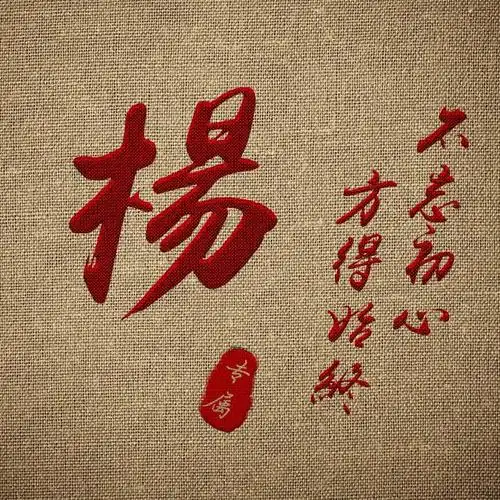 楊
不忘初心
方得始終
专属